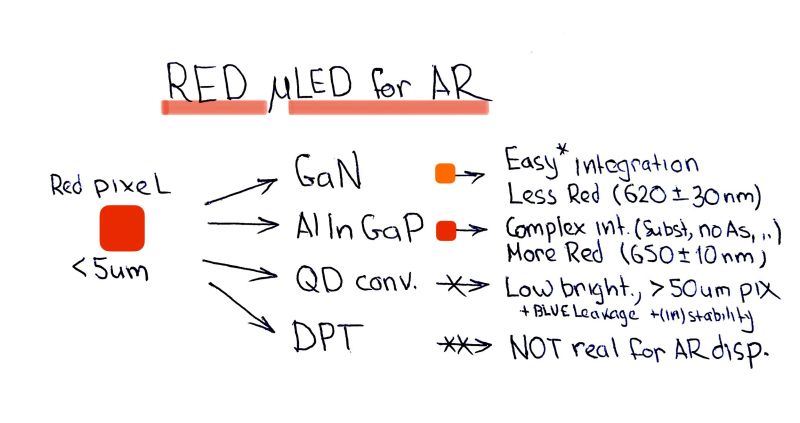 RED μLED for AR
Red pixel
<5um
GaN
Easy* integration
Less Red (620±30nm)
AlInGaP
Complex int. (Subst, no As, ..)
More Red (650±10nm)
QD conv.
Low bright., >50um pix
+BLUE Leakage +(in)stability
DPT
NOT real for AR disp.